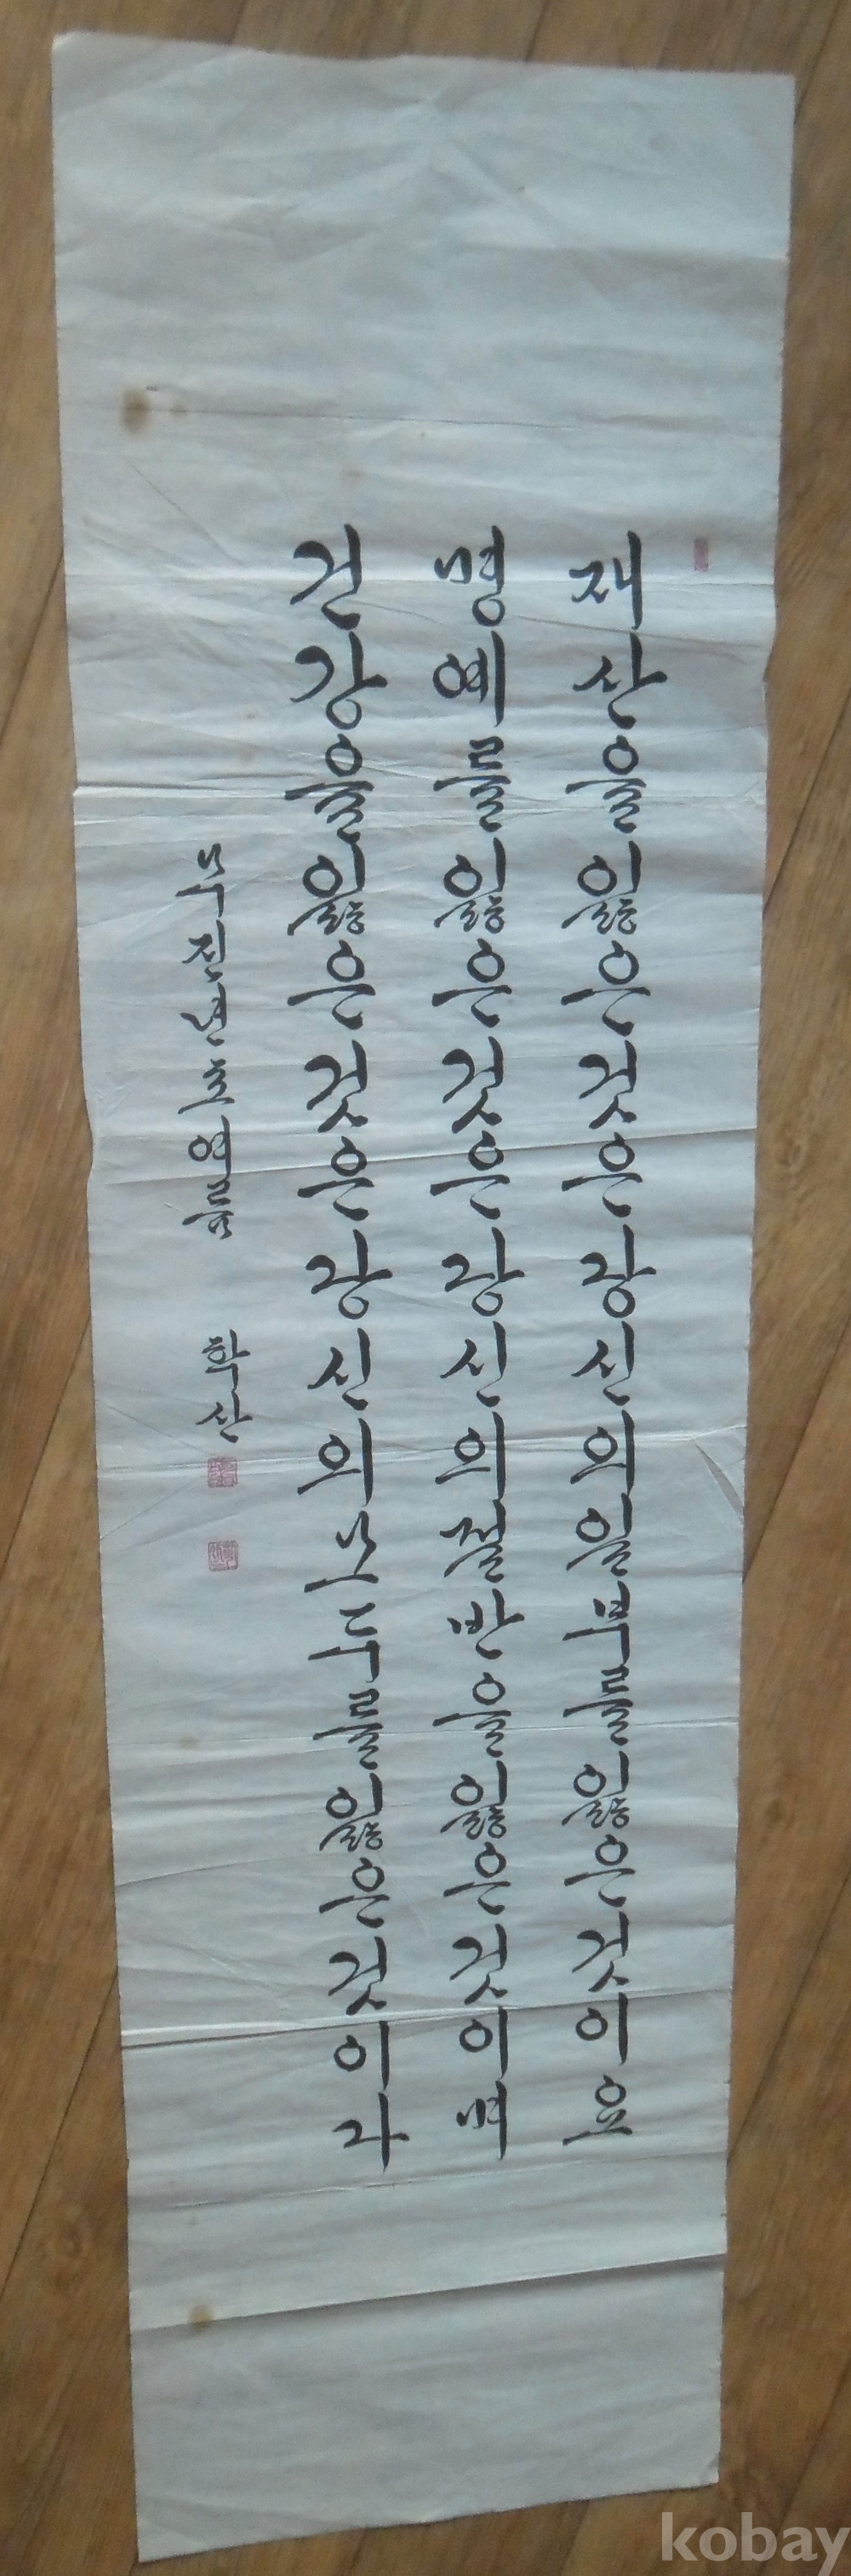 재산을잃은것은당신의일부를잃은것이요
명예를잃은것은당신의절반을잃은것이며
건강을잃은것은당신의모두를잃은것이다
무진년초여름 학산
kobay